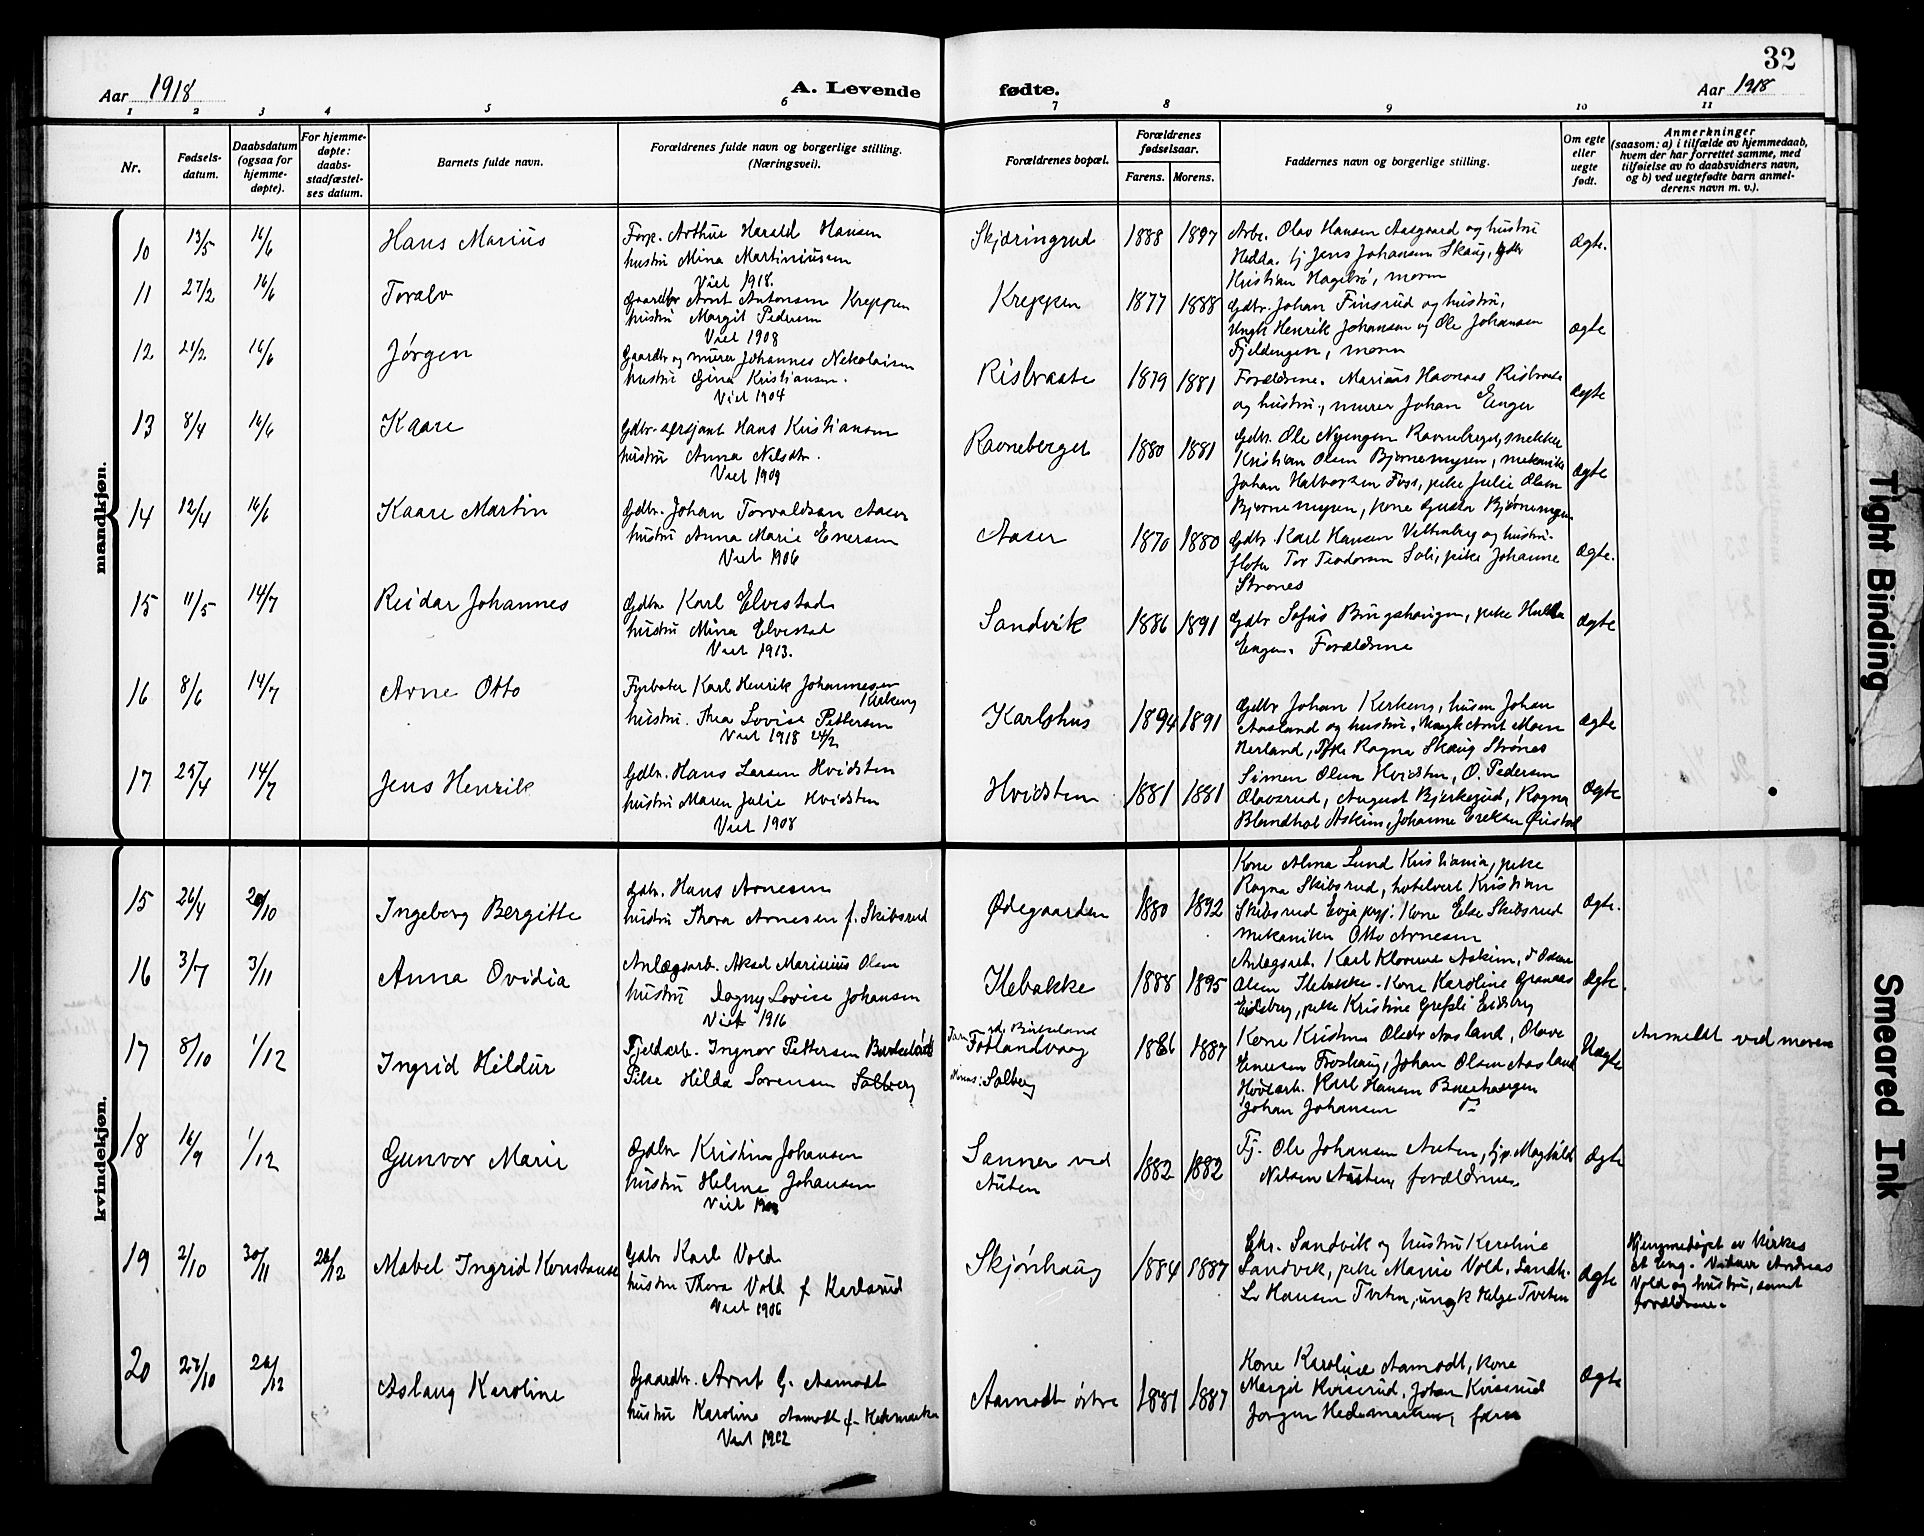 32
Aar 1918
A. Levende
fødte.
Aar 1918
1 2 3 4 5 6 7 8 9 10 11
Nr.
Fødsels-
datum.
Daabsdatum
(ogsaa for
hjemme-
døpte).
For hjemme-
døpte:
daabs-
stadfæstel-
ses datum.
Barnets fulde navn.
Forældrenes fulde navn og borgerlige stilling.
(Næringsvei).
Forældrenes bopæl.
Forældrenes
fødselsaar.
Farens. Morens.
Faddernes navn og borgerlige stilling.
Om egte
eller
uegte
født.
Anmerkninger
(saasom: a) i tilfælde av hjemmedaab,
hvem der har forrettet samme, med
tilføielse av to daabsvidners navn,
og b) ved uegtefødte barn anmel-
derens navn m. v.).
mandkjøn.
10 13/5 16/6 Hans Marius
Forp. Arthur Harald Hansen
hustru Mina Martiniusen
Viet 1918.
Skjæringrud 1888 1897
Arb. Olav Hansen Aasgaard og hustru
Hedda. tj. Jens Johansen Skaug, gdbr
Kristian Hagebrø, moren
Ægte.
11 27/2 16/6 Toralv
Gaardbr Arnt Antonsen Kreppen
hustru Margit Pedersen
Viet 1908
Kreppen 1877 1888
Gdbr. Johan Finsrud og hustru,
Ungk Henrik Johansen og Ole Johansen
Fjeldengen, moren
Ægte
12 21/2 16/6 Jørgen
Gaardbr og murer Johannes Nekolaisen
hustru Gina Kristiansen.
Viet 1904
Risbraate 1879 1881
Forældrene. Marius Havnaas Risbraate
og hustru, murer Johan Enger
Ægte
13 8/4 16/6 Kaare
Gdbr. sersjant Hans Kristiansen
hustru Anna Nilsdtr.
Viet 1909
Ravneberget 1880 1881
Gdbr. Ole Nyengen Ravneberget, snekker
Kristian Olsen Bjørnemyren, mekanike
Johan Halvorsen Foss, pike Julie Olsen
Bjørnemyren, kone Gusta Bjørnemyren
Ægte
14 12/4 16/6 Kaare Martin
Gdbr. Johan Torvaldsen Aaser
hustru Anna Marie Enersen
Viet 1906
Aaser 1870 1880
Gdbr. Karl Hansen Veltenberg og hustru.
fløter Tor Teodorsen Soli, pike Johanne
Strønes
Ægte.
15 11/5 14/7 Reidar Johannes
Gdbr Karl Elvestad
hustru Mina Elvestad
Viet 1913.
Sandvik 1886 1891
Gdbr Sofus Bingshaugen, pike Hulda
Enger. Forældrene
Ægte
16 8/6 14/7 Arne Otto
Fyrbøter Karl Henrik Johannesen
Kirkeng
hustru. Thea Lovise Pettersen
Viet 1918 24/2
Karlshus 1894 1891
Gdbr Johan Kirkeng, husm Johan
Aasland og hustru, Ungk Arnt Moen
Nerland, Pike Ragna Skaug Strønes
Ægte
17 25/4 14/7 Jens Henrik
Gdbr. Hans Larsen Hvidsten
hustru Maren Julie Hvidsten
Viet 1908
Hvidsten 1881 1881
Simen Olsen Hvidsten, O. Pedersen
Olavsrud, August Bjerkerud, Ragna
Blandhol Askim, Johanne Ereksen Øristad
Ægte
kvindekjøn.
15 26/4 20/10 Ingeborg Bergitte
Gdbr. Hans Arnesen
hustru Thora Arnesen f. Skibsrud
Ødegaarden 1880 1892
Kone Alma Lund Kristiania, pike
Ragna Skibsrud, hotelvert Kristian
Skibsrud Evja, Kone Else Skibsrud
mekaniker Otto Arnesen
Ægte.
16 3/7 3/11 Anna Ovidia
Anlægsarb. Aksel Marinius Olsen
hustru Dagny Lovise Johansen
Viet 1916
Ilebakke 1888 1895
Anlægsarb. Karl Klovrud Askim,
Olsen Ilebakke. Kone Karoline Granaas
Eidsberg, pike Kristine Grefsli Eidsberg
Ægte.
17 8/10 1/12 Ingrid Hildur
Fjeldarb. Ingvar Pettersen
Pike Hilda Sorensen Solberg
Forlandvaag
Solberg
1886 1887
Kone Kristine Olsdtr Aasland, Olave
Enersen Froshaug, Johan Olsen Aasland
Hovlarb. Karl Hansen
Johan Johansen
Uægte
Anmeldt ved moren
18 16/9 1/12 Gunvor Marie
Gdbr Kristian Johansen
hustru Helene Johansen
Viet
Sanner ved
Auten
1882 1882
Tj. Ole Johansen Auten, tjp. Magtilde
Nilsen Auten, forældrene.
Ægte
19 2/10 30/11 26/12 Mabel Ingrid Konstanse
Gdbr Karl Vold
hustru Thora Vold f Karlsrud
Viet 1906
Skjønhaug 1884 1887
Chr. Sandvik og hustru Karoline
Sandvik, pike Marie Vold, Landh.
L. Hansen Tveten, ungk Helge Tveten
Ægte
Hjemmedøpt av kirkes
Eng. Vidner Andreas
Vold og hustru, samt
forældrene.
20 27/10 26/12 Aslaug Karoline
Gaardbr. Arnt G. Aamodt
hustru Karoline Aamodt f. Hedemarken
Viet 1912
Aamodt østre 1881 1887
Kone Karoline Aamodt, kone
Margit Kviserud, Johan Kviserud
Jørgen Hedemarken, faren
Ægte
Tight Binding
Smeared Ink